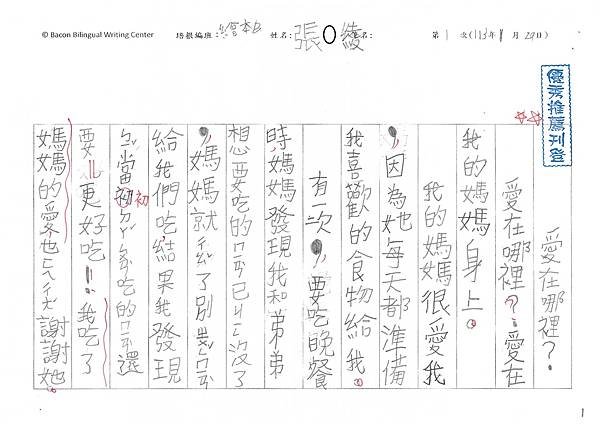 © Bacon Bilingual Writing Center 培根編班：繪本B 姓名：張O綾 名： 第 1 次(113年 月 29日)
優秀推薦刊登
愛在哪裡？
愛在哪裡？愛在
我的媽媽身上。
我的媽媽很愛我
，因為她每天都準備
我喜歡的食物給我。
有一次，要吃晚餐
時，媽媽發現我和弟弟
想要吃的 已 沒了
，媽媽就 了別
給我們吃，結果我發現
ㄅㄧˇ當初 吃的 還
初
要更好吃！！我吃了
媽媽的愛也 謝謝她。
1